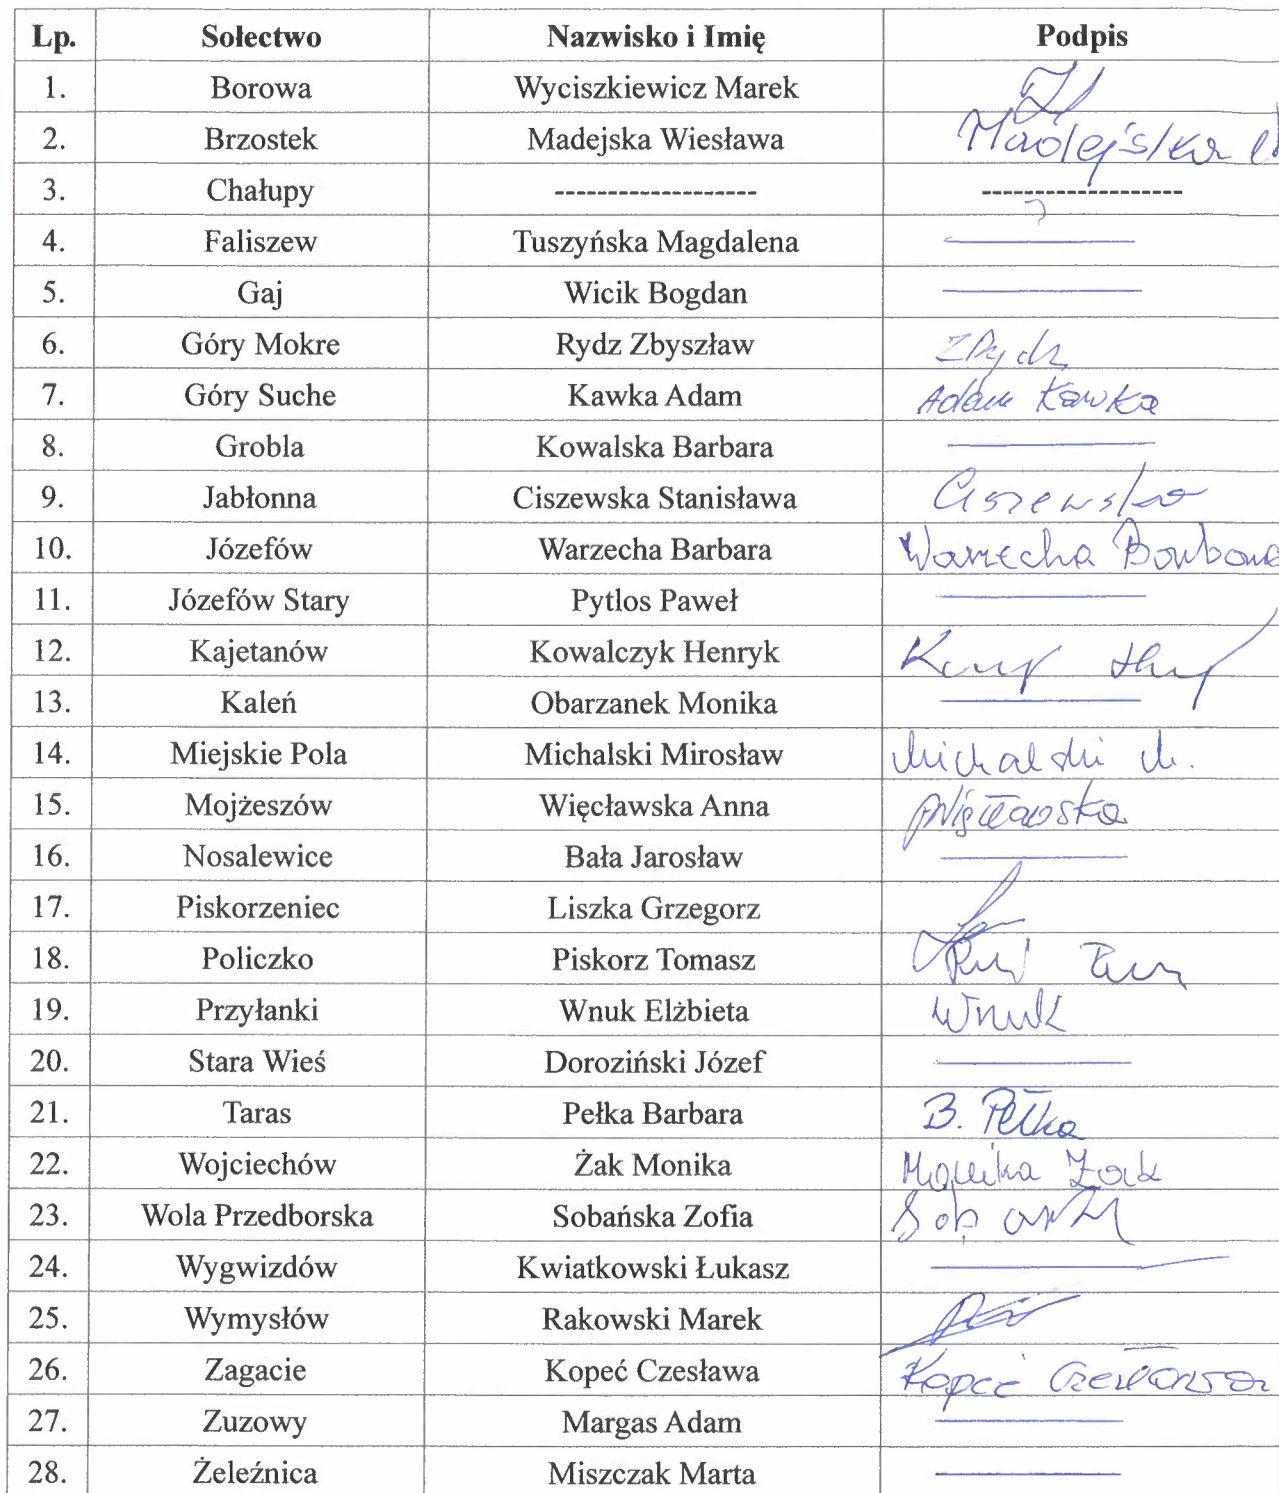 Lp. Sołectwo Nazwisko i Imię Podpis
1. Borowa Wyciszkiewicz Marek
2. Brzostek Madejska Wiesława Madejska
3. Chałupy ------------------- -------------------
4. Faliszew Tuszyńska Magdalena
5. Gaj Wicik Bogdan
6. Góry Mokre Rydz Zbyszław ZRydz
7. Góry Suche Kawka Adam Adam Kawka
8. Grobla Kowalska Barbara
9. Jabłonna Ciszewska Stanisława Ciszewska
10. Józefów Warzecha Barbara Warzecha Barbara
11. Józefów Stary Pytlos Paweł
12. Kajetanów Kowalczyk Henryk
13. Kaleń Obarzanek Monika
14. Miejskie Pola Michalski Mirosław Michalski M.
15. Mojżeszów Więcławska Anna AWięcławska
16. Nosalewice Bała Jarosław
17. Piskorzeniec Liszka Grzegorz
18. Policzko Piskorz Tomasz
19. Przyłanki Wnuk Elżbieta Wnuk
20. Stara Wieś Doroziński Józef
21. Taras Pełka Barbara B. Pełka
22. Wojciechów Żak Monika Monika Żak
23. Wola Przedborska Sobańska Zofia
24. Wygwizdów Kwiatkowski Łukasz
25. Wymysłów Rakowski Marek
26. Zagacie Kopeć Czesława Kopeć Czesława
27. Zuzowy Margas Adam
28. Żeleźnica Miszczak Marta